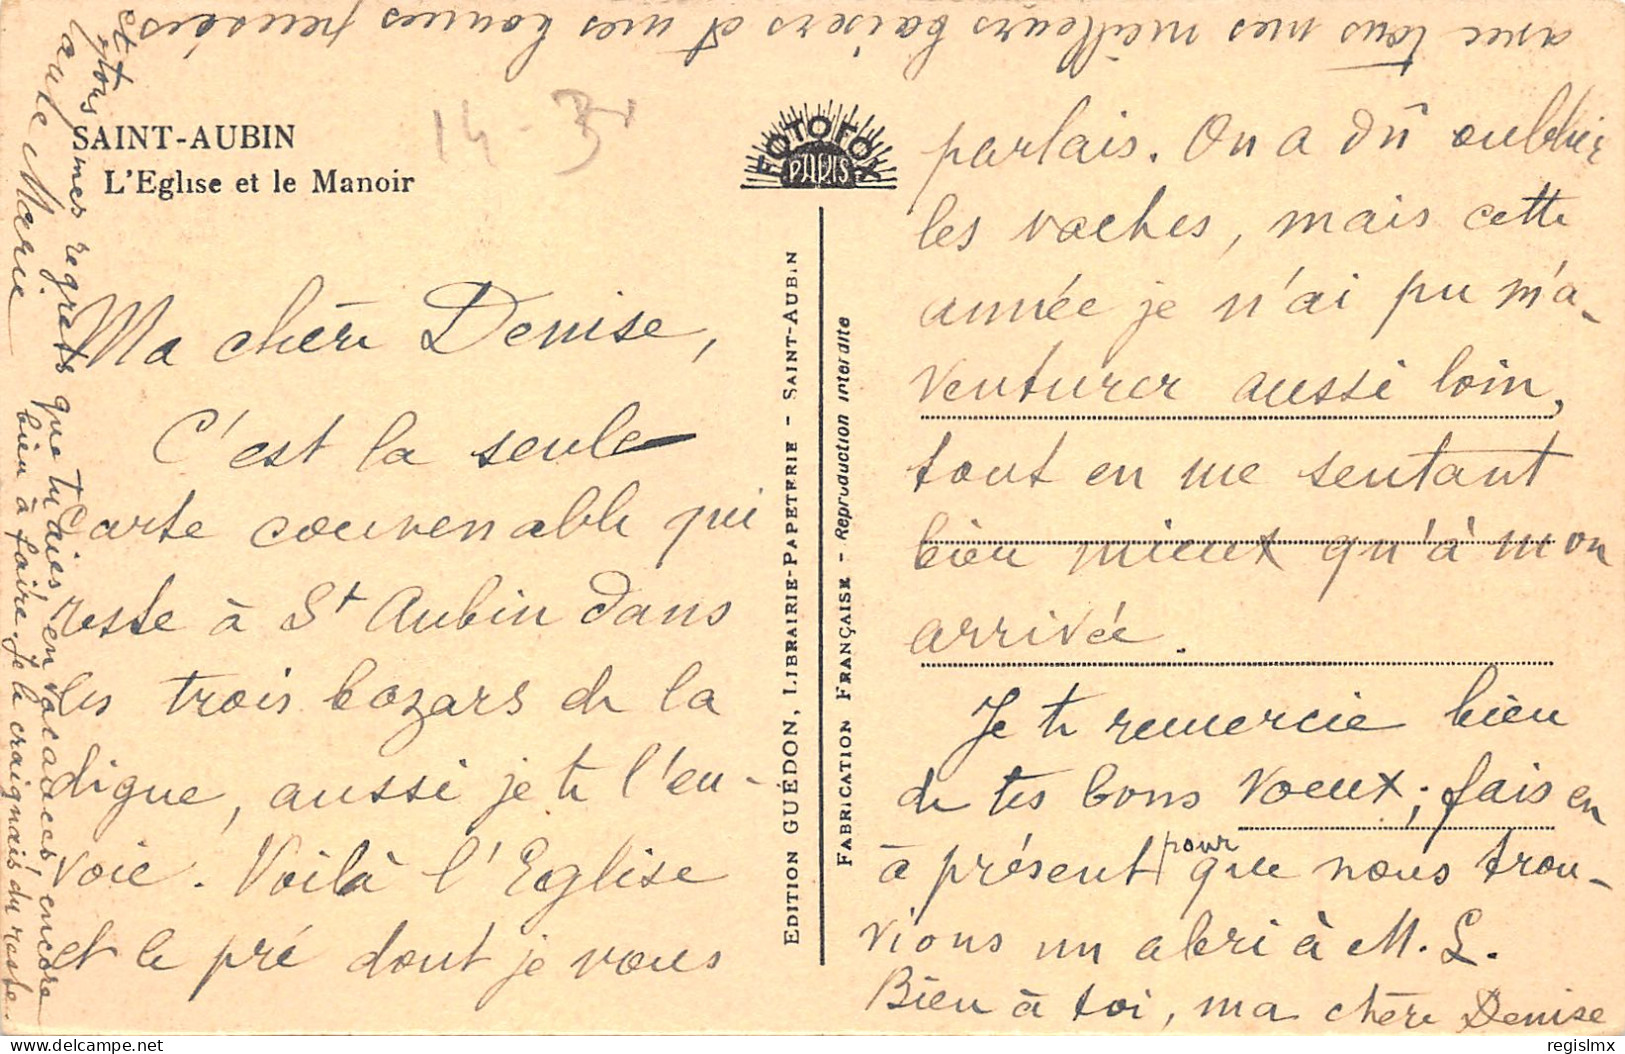 SAINT-AUBIN
L'Eglise et le Manoir
14 - 3
FOTOFOX
PARIS
EDITION GUÉDON, LIBRAIRIE-PAPETERIE - SAINT-AUBIN
FABRICATION FRANÇAISE - Reproduction interdite
Ma chère Denise,
C'est la seule
carte convenable qui
reste à St Aubin dans
les trois bazars de la
digue, aussi je te l'en-
voie. Voilà l'Eglise
et le pré dont je vous
parlais. On a dû oublier
les vaches, mais cette
année je n'ai pu m'a-
venturer aussi loin,
tout en me sentant
bien mieux qu'à mon
arrivée.
Je te remercie bien
de tes bons voeux; fais en
à présent pour que nous trou-
vions un abri à M. L.
Bien à toi, ma chère Denise
avec tous mes meilleurs baisers et mes bonnes pensées
et tous mes regrets que tu aies en vacances encore
bien à faire. Je le craignais du reste.
Marie